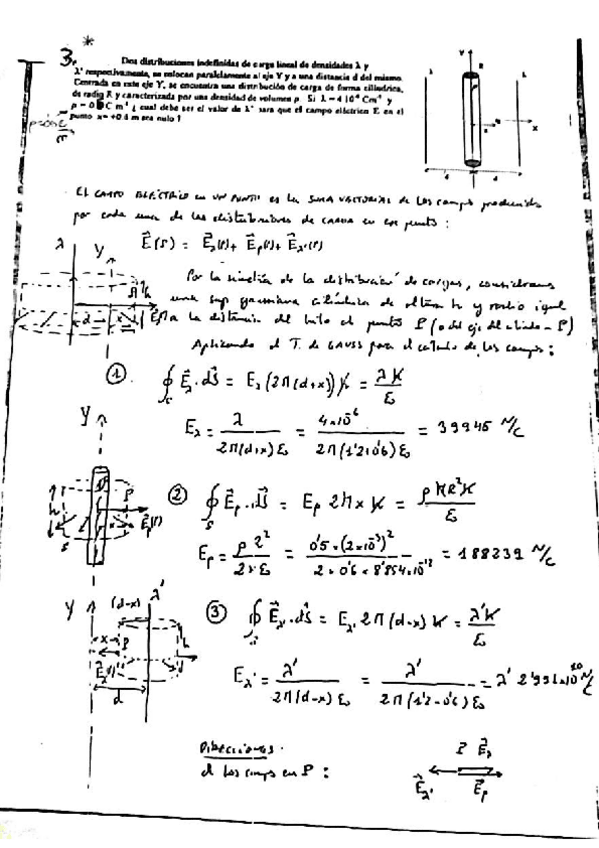 *
3.
Dos distribuciones indefinidas de carga lineal de densidades λ y
λ' respectivamente, se colocan paralelamente al eje Y y a una distancia d del mismo.
Centrada en este eje Y, se encuentra una distribución de carga de forma cilíndrica,
de radio R y caracterizada por una densidad de volumen ρ. Si λ = 4 10⁻⁶ Cm⁻¹ y
cual debe ser el valor de λ' para que el campo eléctrico E en el
punto x = +0.4 m sea nulo ?
EL CAMPO ELÉCTRICO en UN PUNTO es la SUMA VECTORIAL de los campos producidos
por cada una de las distribuciones de CARGA en ese punto :
E⃗(P) = E⃗λ(P) + E⃗ρ(P) + E⃗λ'(P)
Por la simetría de la distribución de cargas, consideramos
una sup gaussiana cilíndrica de altura h y radio igual
a la distancia del hilo al punto P (o del eje del cilindro - P)
Aplicando el T. de GAUSS para el cálculo de los campos :
① ∮ E⃗λ · dS⃗ = Eλ (2π(d+x)) h = λh/ε
Eλ = λ / 2π(d+x) ε₀ = 4×10⁻⁶ / 2π(1'2+0'6) ε₀ = 39945 N/C
② ∮ E⃗ρ · dS⃗ = Eρ 2π x h = ρπR²h/ε
Eρ = ρ R² / 2 x ε₀ = 0'5 × (2×10⁻³)² / 2 × 0'6 × 8'854×10⁻¹² = 188239 N/C
③ ∮ E⃗λ' · dS⃗ = Eλ' 2π(d-x) h = λ'h/ε
Eλ' = λ' / 2π(d-x) ε₀ = λ' / 2π(1'2-0'6) ε₀ = λ' 2'9961×10¹⁰ N/C
Direcciones
d los campos en P :
P E⃗λ
E⃗λ' E⃗ρ